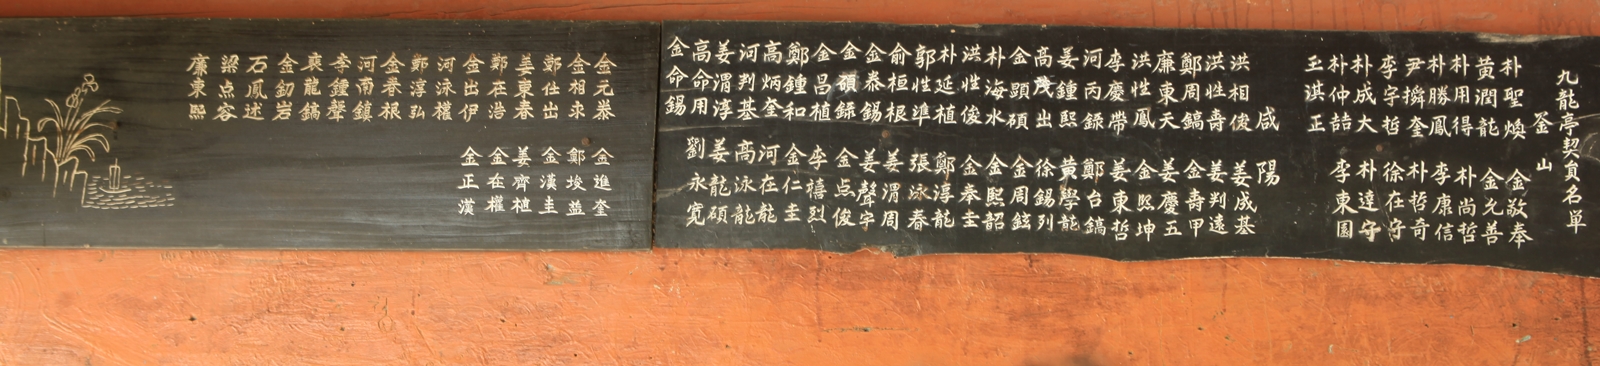 九龍亭契員名単
釜山
朴聖煥 金敬奉
黃潤龍 金允善
朴用得 朴尚哲
朴勝鳳 李康信
尹擠奎 朴哲奇
李字哲 徐在守
朴成大 朴達守
朴仲喆 李東園
王淇正
咸陽
洪相俊 姜成基
洪性壽 姜判遠
鄭周鎬 金壽甲
廉東天 姜慶五
洪性鳳 金熙坤
李慶帶 姜東哲
河丙録 鄭台鎬
姜鍾熙 黃學龍
高茂出 徐錫列
金顕碩 金周鉉
朴海水 金熙韶
洪性俊 金奉圭
朴延植 鄭淳龍
郭性準 張泳春
俞桓根 姜渭周
金泰錫 姜聲宇
金碩録 金点俊
金昌植 李禧烈
鄭鍾和 金仁圭
高炳奎 河在龍
河判基 高泳龍
姜渭淳 姜龍碩
高命用 劉永寛
金命錫
金元泰 金進奎
金相束 鄭埈益
鄭仕出 金漢圭
姜東春 姜齊植
鄭在浩 金在權
金出伊 金正漢
河泳權
鄭淳弘
金春根
河南鎮
李鐘聲
裵龍鎬
金釰岩
石鳳述
梁点容
廉東熙